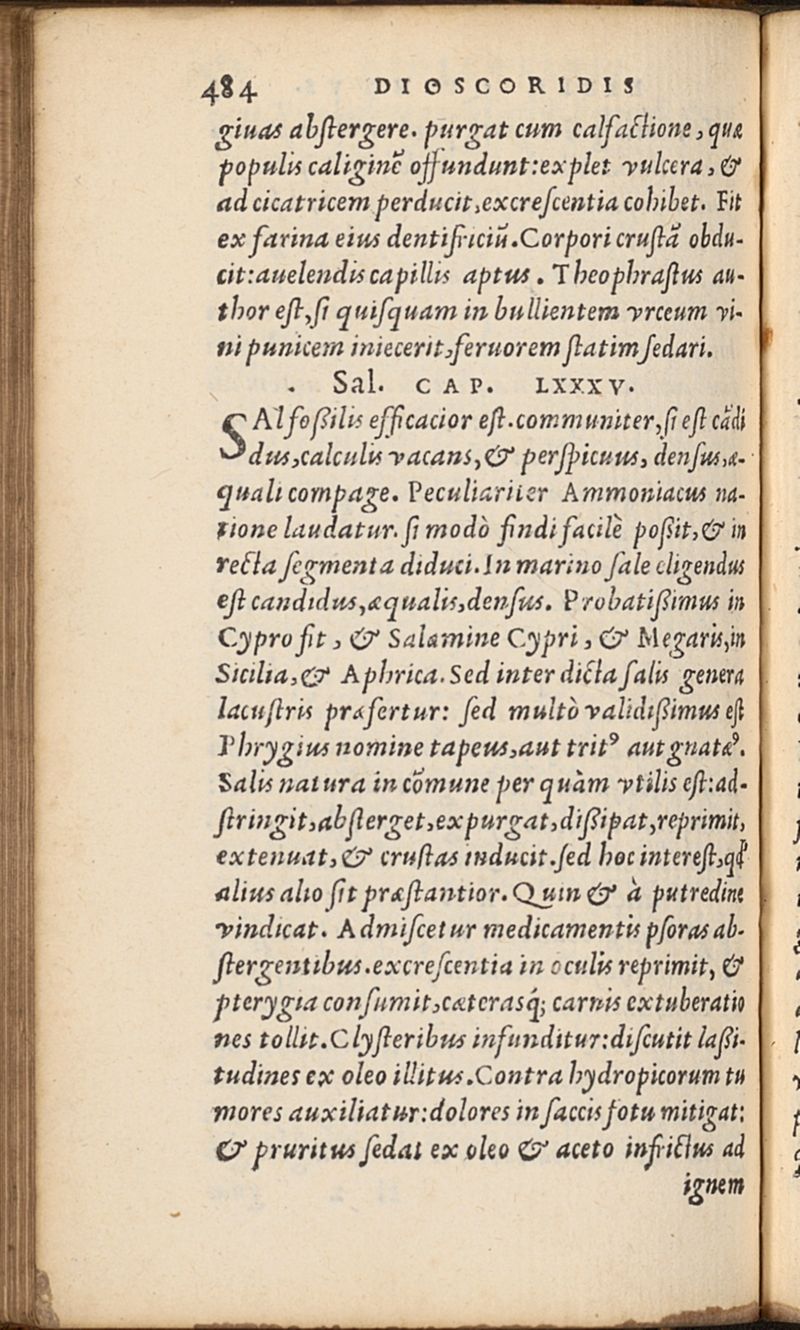 484 DIOSCORIDIS
giuas abſtergere. purgat cum calfactione, quæ
populis caliginē offundunt:explet vulcera, &
ad cicatricem perducit,excreſcentia cohibet. Fit
ex farina eius dentifriciū.Corpori cruſtā obdu-
cit:auelendis capillis aptus . Theophraſtus au-
thor eſt,ſi quiſquam in bullientem vrceum vi-
ni punicem iniecerit,feruorem ſtatim ſedari.
Sal. CAP. LXXXV.
SAl foßilis efficacior eſt.communiter,ſi eſt cādi
dus,calculis vacans,& perſpicuus, denſus,æ-
quali compage. Peculiariter Ammoniacus na-
tione laudatur. ſi modò findi facilè poßit,& in
recta ſegmenta diduci.In marino ſale eligendus
eſt candidus,æqualis,denſus. Probatißimus in
Cypro fit , & Salamine Cypri , & Megaris,in
Sicilia,& Aphrica.Sed inter dicta ſalis genera
lacuſtris præfertur: ſed multò validißimus eſt
Phrygius nomine tapeus,aut tritꝰ aut gnatæꝰ.
Salis natura in cōmune per quàm vtilis eſt:ad-
ſtringit,abſterget,expurgat,dißipat,reprimit,
extenuat,& cruſtas inducit.ſed hoc intereſt,qđ
alius alio ſit præſtantior.Quin & à putredine
vindicat. Admiſcetur medicamentis pſoras ab-
ſtergentibus.excreſcentia in oculis reprimit, &
pterygia conſumit,cæterasq́; carnis extuberatio
nes tollit.Clyſteribus infunditur:diſcutit laßi-
tudines ex oleo illitus.Contra hydropicorum tu
mores auxiliatur:dolores in ſaccis fotu mitigat:
& pruritus ſedat ex oleo & aceto infrictus ad
ignem